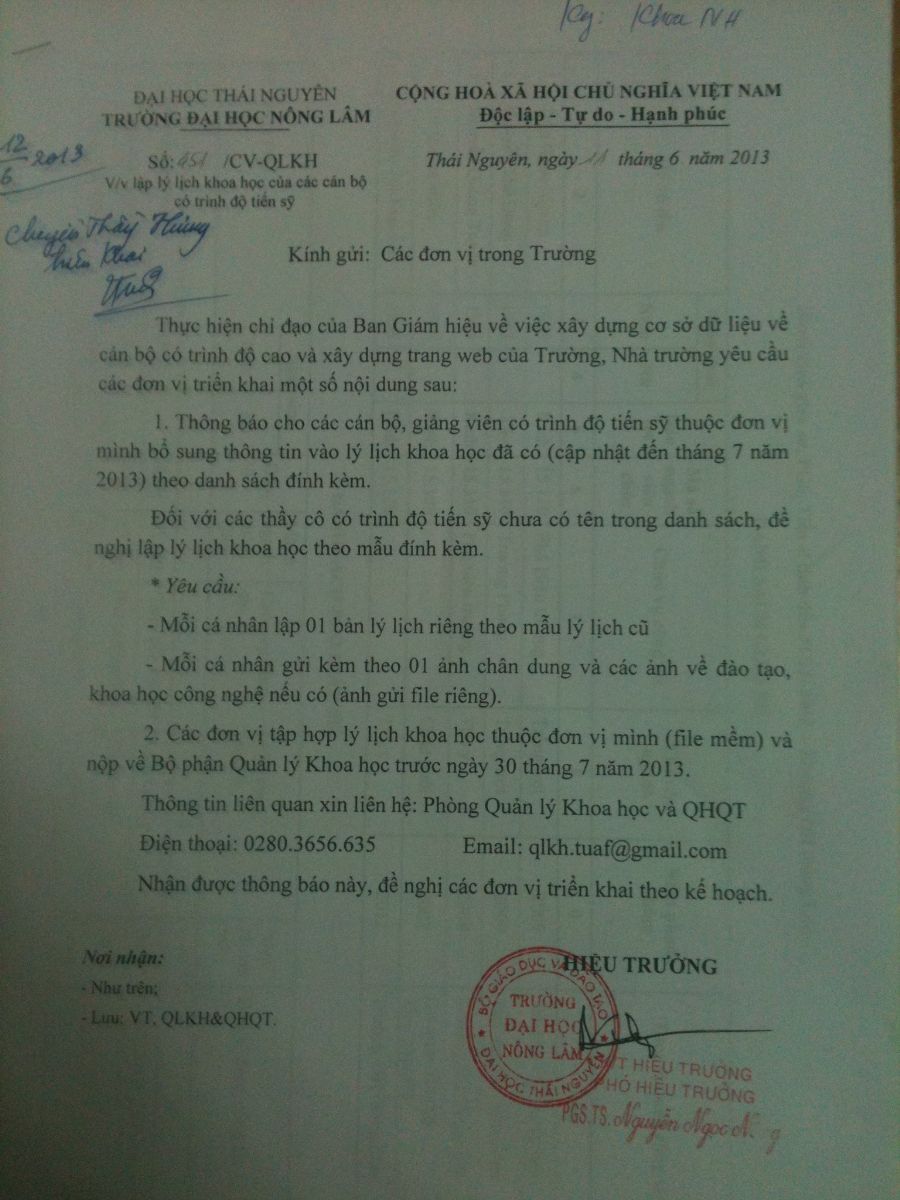 Kg: Khoa NH
ĐẠI HỌC THÁI NGUYÊN
TRƯỜNG ĐẠI HỌC NÔNG LÂM
CỘNG HOÀ XÃ HỘI CHỦ NGHĨA VIỆT NAM
Độc lập - Tự do - Hạnh phúc
12/6 2013
Số: 451 /CV-QLKH
V/v lập lý lịch khoa học của các cán bộ
có trình độ tiến sỹ
Thái Nguyên, ngày 11 tháng 6 năm 2013
Chuyển Thầy Hùng
triển khai
Kính gửi: Các đơn vị trong Trường
Thực hiện chỉ đạo của Ban Giám hiệu về việc xây dựng cơ sở dữ liệu về
cán bộ có trình độ cao và xây dựng trang web của Trường, Nhà trường yêu cầu
các đơn vị triển khai một số nội dung sau:
1. Thông báo cho các cán bộ, giảng viên có trình độ tiến sỹ thuộc đơn vị
mình bổ sung thông tin vào lý lịch khoa học đã có (cập nhật đến tháng 7 năm
2013) theo danh sách đính kèm.
Đối với các thầy cô có trình độ tiến sỹ chưa có tên trong danh sách, đề
nghị lập lý lịch khoa học theo mẫu đính kèm.
* Yêu cầu:
- Mỗi cá nhân lập 01 bản lý lịch riêng theo mẫu lý lịch cũ
- Mỗi cá nhân gửi kèm theo 01 ảnh chân dung và các ảnh về đào tạo,
khoa học công nghệ nếu có (ảnh gửi file riêng).
2. Các đơn vị tập hợp lý lịch khoa học thuộc đơn vị mình (file mềm) và
nộp về Bộ phận Quản lý Khoa học trước ngày 30 tháng 7 năm 2013.
Thông tin liên quan xin liên hệ: Phòng Quản lý Khoa học và QHQT
Điện thoại: 0280.3656.635 Email: qlkh.tuaf@gmail.com
Nhận được thông báo này, đề nghị các đơn vị triển khai theo kế hoạch.
Nơi nhận:
- Như trên;
- Lưu: VT, QLKH&QHQT.
HIỆU TRƯỞNG
BỘ GIÁO DỤC VÀ ĐÀO TẠO
TRƯỜNG
ĐẠI HỌC
NÔNG LÂM
ĐẠI HỌC THÁI NGUYÊN
HIỆU TRƯỞNG
PHÓ HIỆU TRƯỞNG
PGS.TS. Nguyễn Ngọc